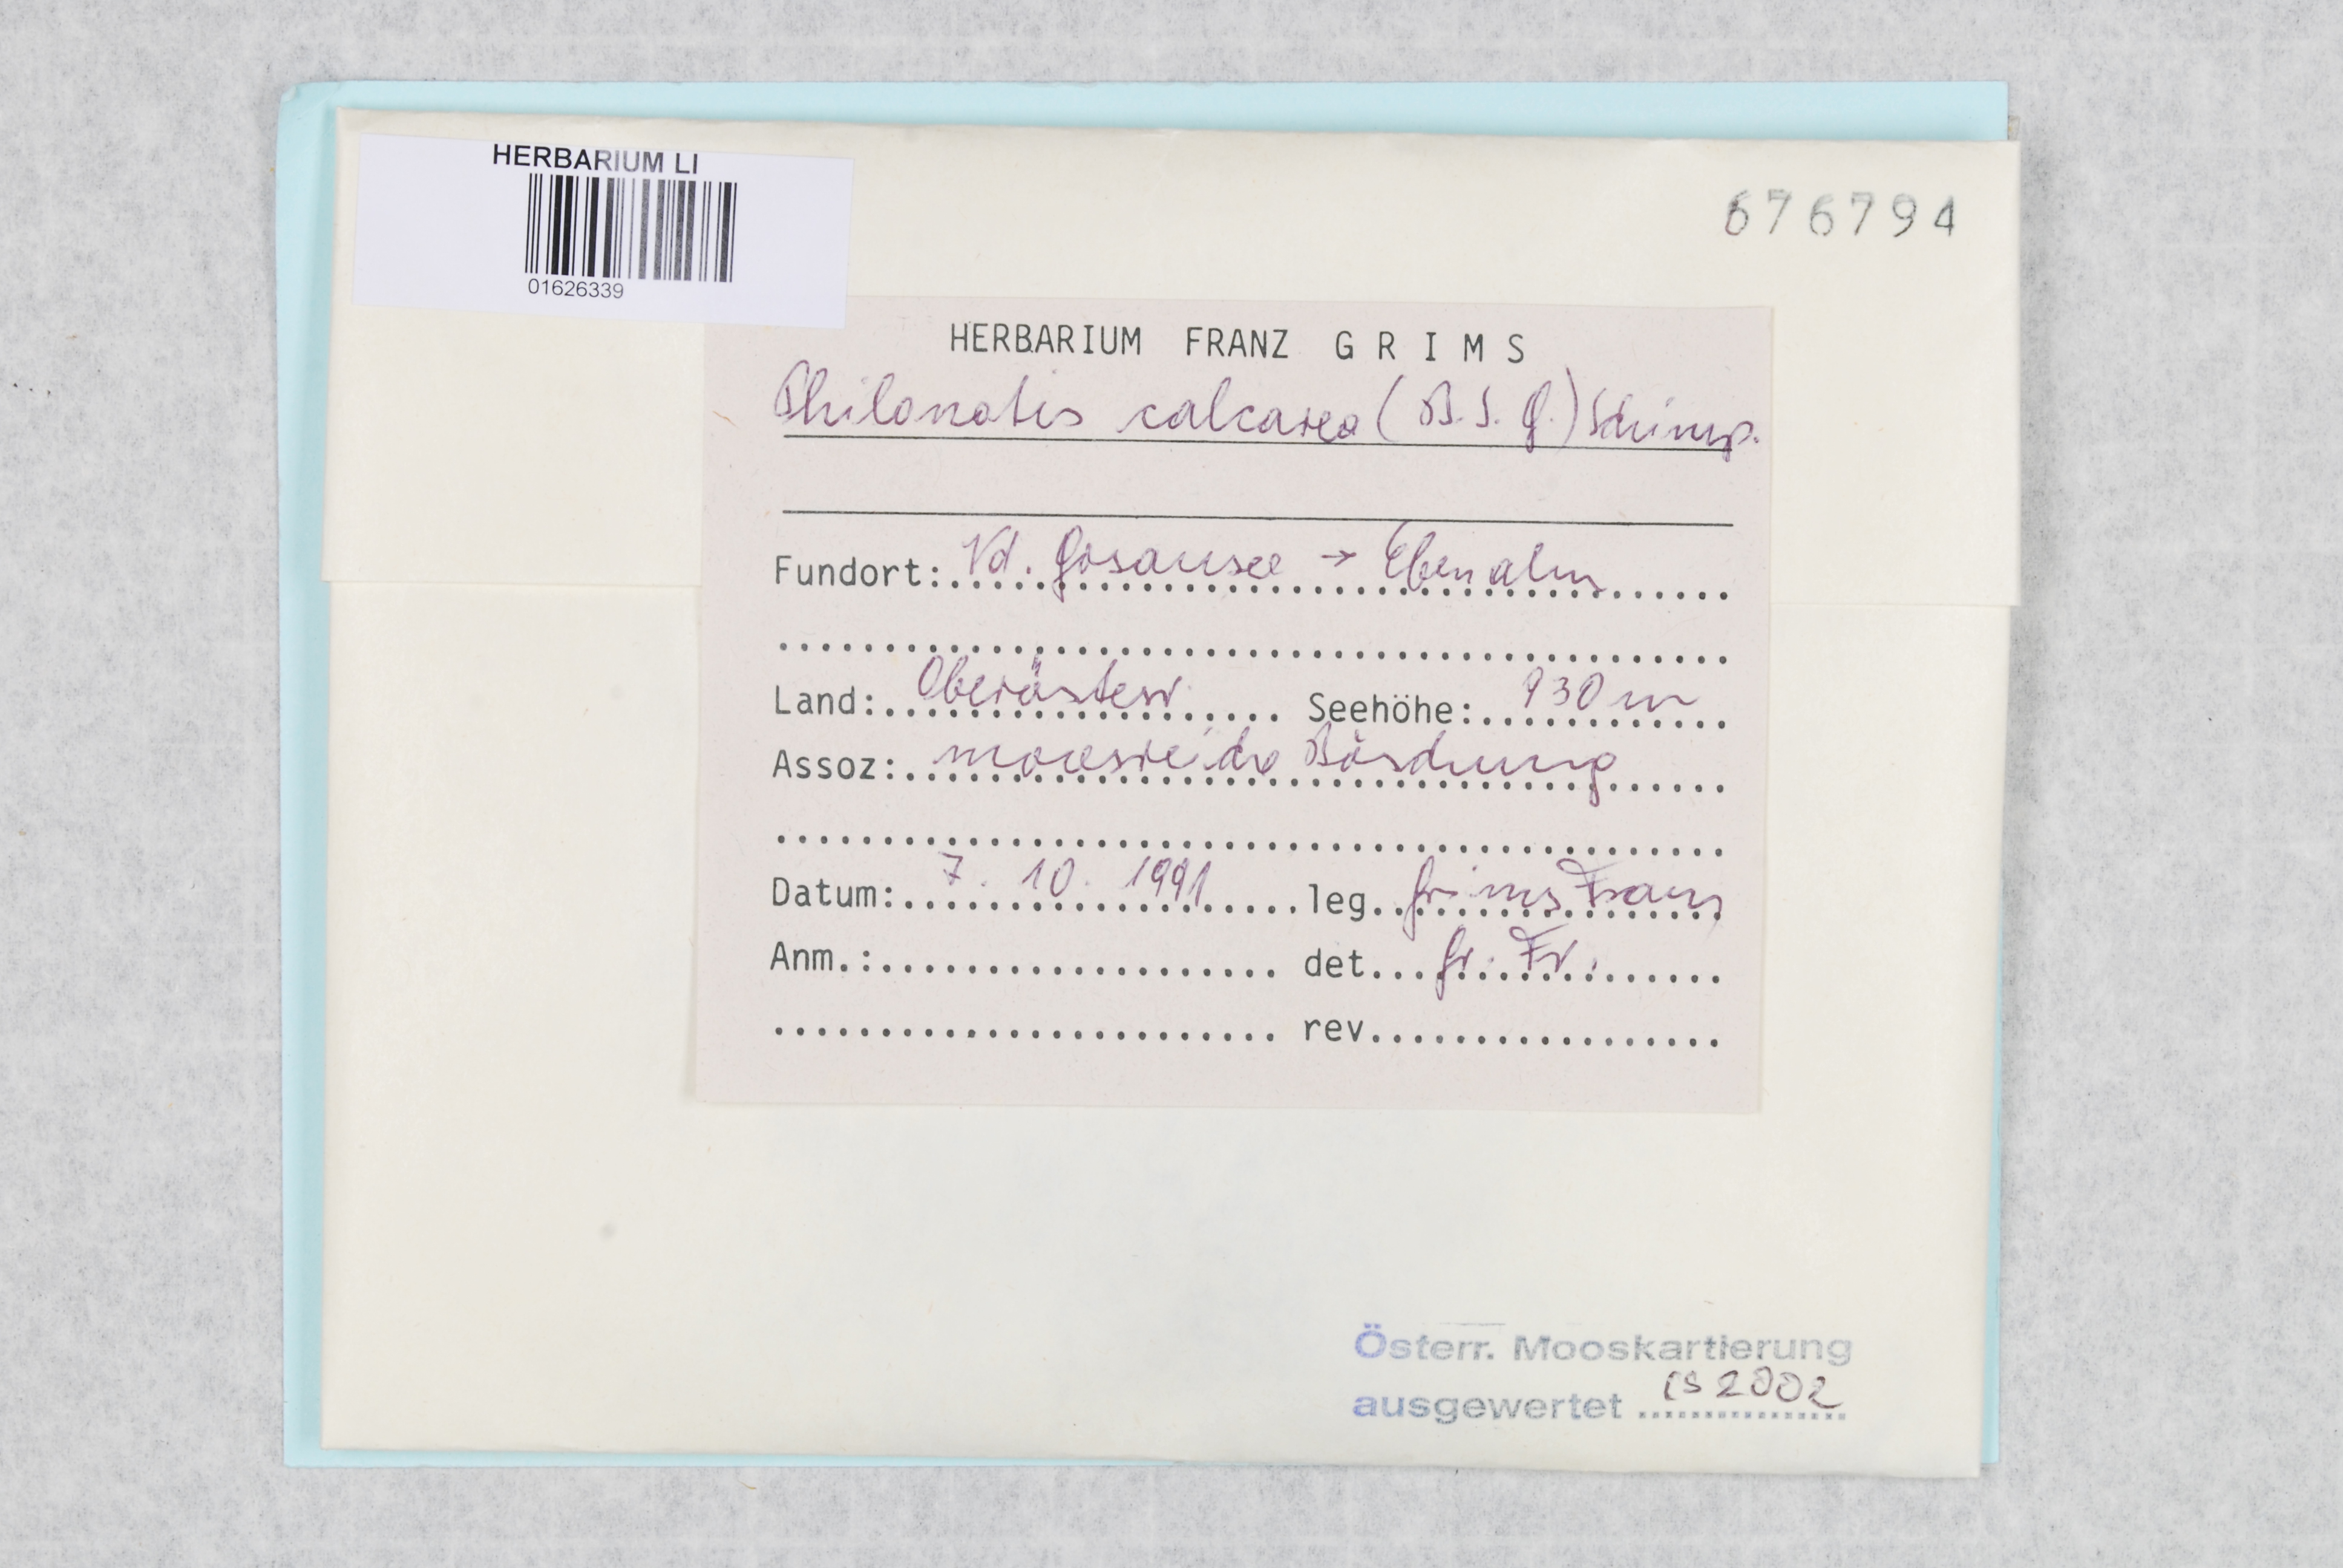 HERBARIUM LI
01626339
676794
HERBARIUM FRANZ GRIMS
Philonotis calcarea (B.S.G.) Schimp.
Fundort: Vd. Gosausee → Ebenalm
Land: Oberösterr. Seehöhe: 930 m
Assoz: moosreiche Böschung
Datum: 7. 10. 1991 leg. Grims Franz
Anm.: det. Gr. Fr.
rev.
Österr. Mooskartierung
ausgewertet 2002